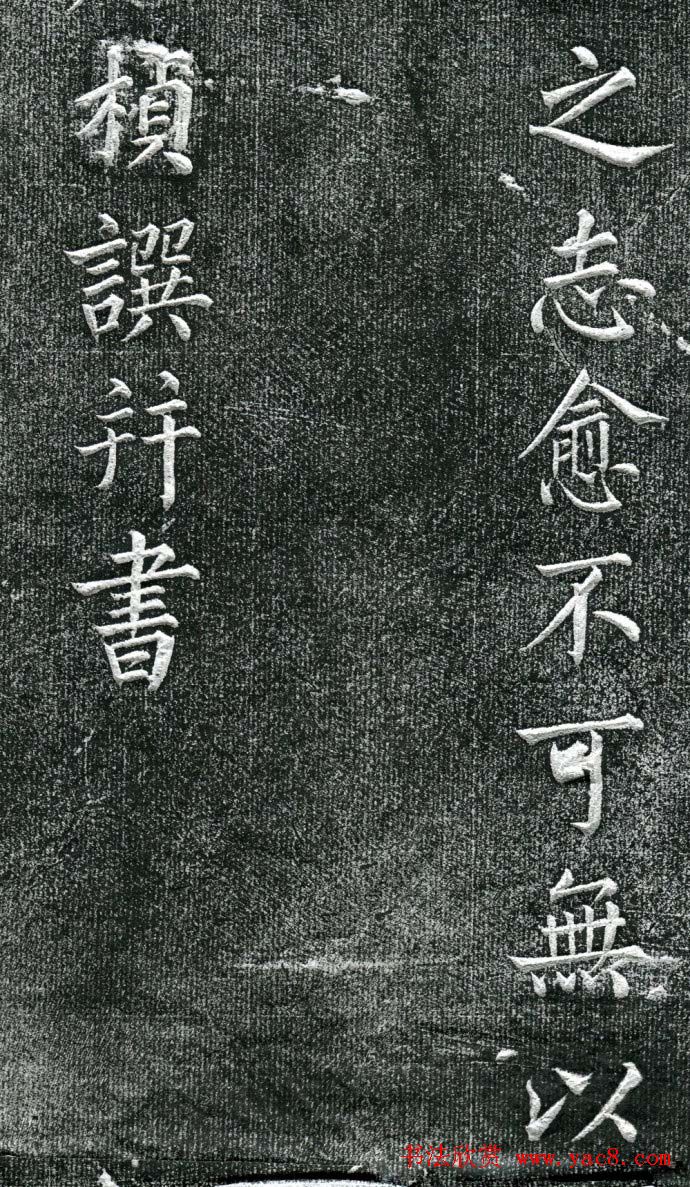 之志愈不可無以
撰并書
书法欣赏 www.yac8.com